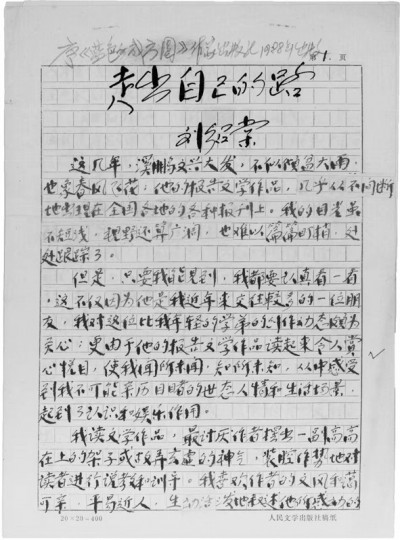 序《蓝色的 方圆》作家出版社1988年出版
第1.页
走出自己的路
刘绍棠
这几年,溟鹏文兴大发,不但似夏天大雨,
也象春风飞花;他的报告文学作品,几乎从不间断
地出现在全国各地的各种报刊上。我的目光虽
不短浅,视野还算广阔,也难以篇篇盯梢,处
处跟踪了。
但是,只要我能见到,我都要认真看一看
,这不仅因为他是我近年来交往较多的一位朋
友,我对这位比我年轻的学弟的创作动态颇为
关心;更由于他的报告文学作品读起来令人赏
心悦目,使我闻所未闻,知所未知,从中感受
到我不可能亲历目睹的世态人情和生活场景,
起到了认识和娱乐作用。
我读文学作品,最讨厌作者摆出一副高高
在上的架子或故弄玄虚的神气,装腔作势地对
读者进行说教和训导。我喜欢作者的文风和蔼
可亲,平易近人,生动活泼地叙述他所感动的
20×20=400
人民文学出版社稿纸